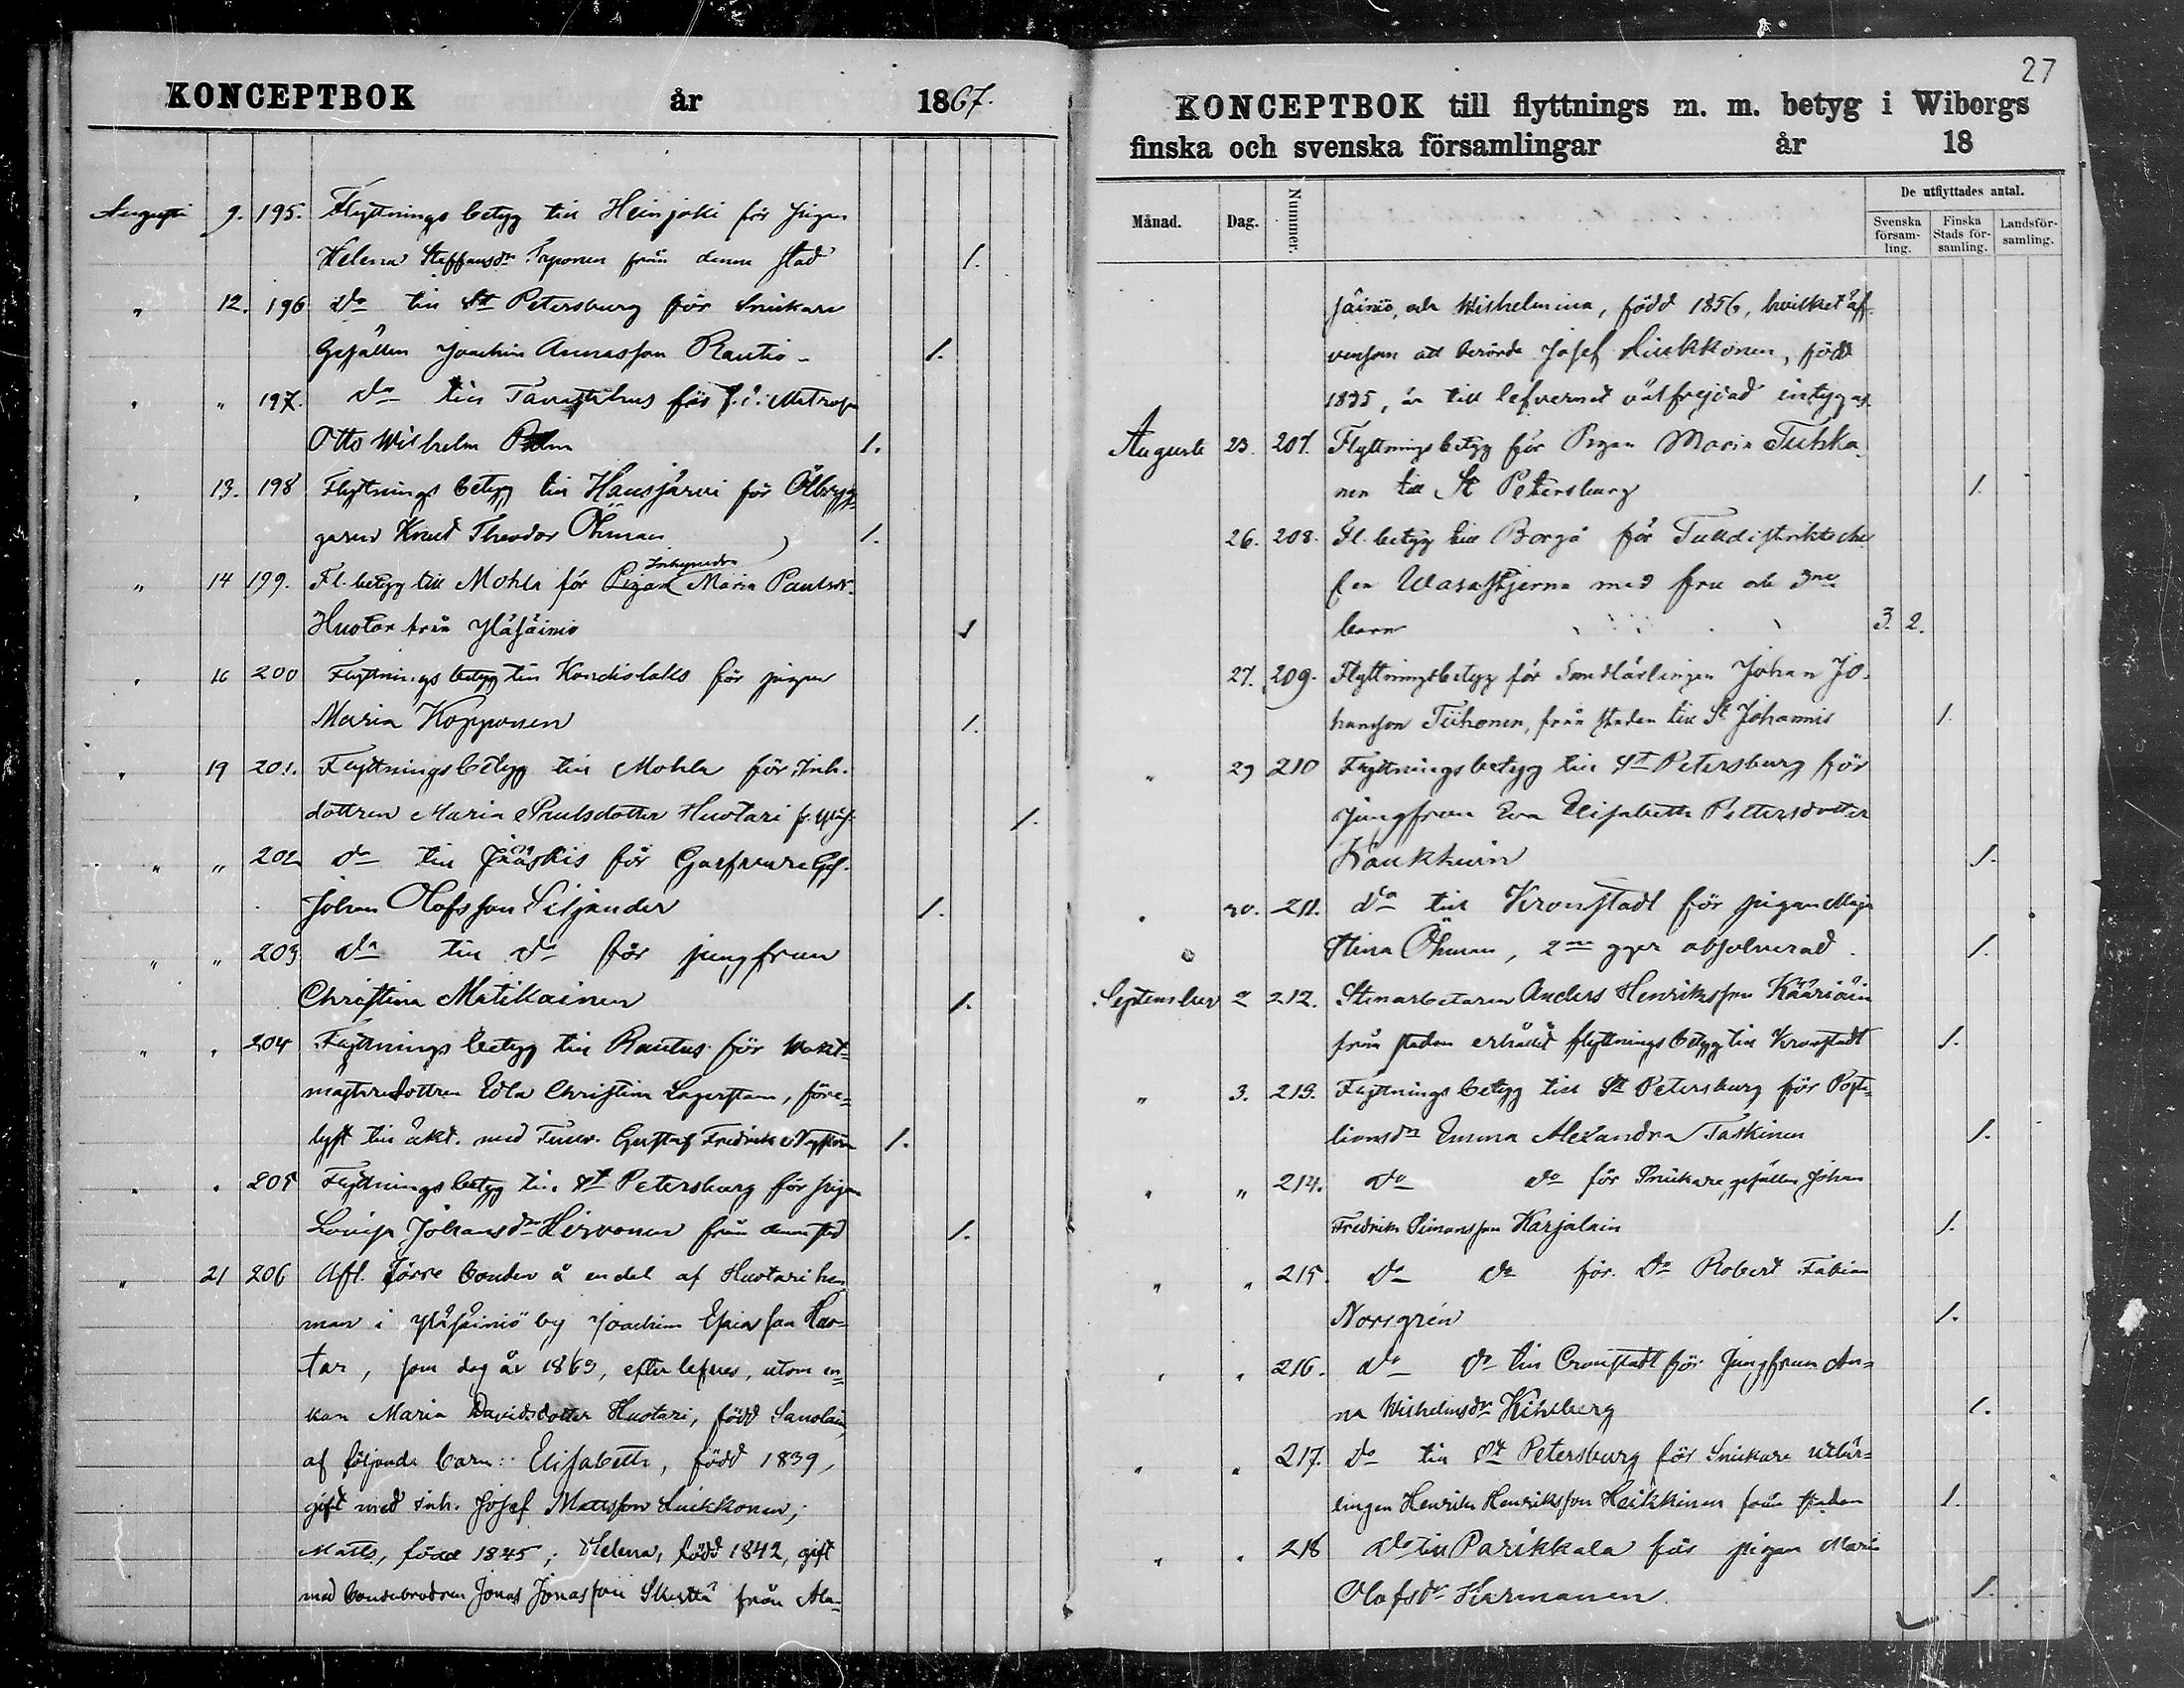 KONCEPTBOK år 1867.
Augusti 9. 195. Flyttnings betyg till Heinjoki för pigan
Helena Steffansdr Toponen från denna stad 1.
" 12. 196 do till St Petersburg för Snickare
Gesällen Joachim Annasson Rautio - 1.
" " 197. do till Tavastehus för f. d. Matrosen
Otto Wilhelm Palm 1.
" 13. 198 Flyttnings betyg till Hausjärvi för Ölbrygg-
garen Knut Theodor Öhman 1.
" 14 199. Fl. betyg till Mohla för Pigan Maria Paulsdr
Huotar från Yläsäiniö 1
" 16 200 Flyttnings betyg till Kondislaks för pigan
Maria Kopponen 1.
" 19 201. Flyttningsbetyg till Mohla för Inh.
dottren Maria Paulsdotter Huotari fr. Yläs. 1.
" " 202 do till Jääskis för Garfvare Ges.
Johan Olofsson Siljander 1.
" " 203 do till do för jungfrun
Christina Matikainen 1.
" " 204 Flyttnings betyg till Rautus för Vakt-
mästaredottren Edla Christina Lagerstam, före-
lyst till äkt. med Gustaf Fredrik 1.
" " 205 Flyttnings betyg till St Petersburg för pigan
Lovisa Johansdr Hirvonen från denna stad 1.
" 21 206 Afl. förre bonden å en del af Huotari hem
man i Yläsäiniö by Joachim Esaiasson Huo-
tar, som dog år 1863, efter lefves, utom en-
kan Maria Davidsdotter Huotari, född Sanolain,
af följande barn: Elisabeth, född 1839,
gift med inh. Josef Mattsson Liukkonen;
Matts, född 1845; Helena, född 1842, gift
med bondebrodren Jonas Jonasson Skyttä från Ala-
27
KONCEPTBOK till flyttnings m. m. betyg i Wiborgs
finska och svenska församlingar år 18
Månad. Dag. Nummer. De utflyttades antal.
Svenska församling. Finska Stads församling. Landsförsamling.
säiniö, och Wilhelmina, född 1856, hvilket äf-
vensom att berörde Josef Liukkonen, född
1835, är till lefvernet välfrejdad intygas.
Augusti 23. 207. Flyttningsbetyg för Pigan Maria Tuhka-
nen till St Petersburg 1.
26. 208. Fl. betyg till Borgå för Tulldistriktsche-
fen Wasastjerna med fru och 3ne
barn 3. 2.
27. 209. Flyttningsbetyg för Smedlärlingen Johan Jo-
hansson Tiihonen, från staden till St Johannis 1.
" 29 210 Flyttningsbetyg till St Petersburg för
Jungfrun Eva Elisabeth Pettersdotter
Kaukkuin 1.
" 30. 211. do till Kronstadt för pigan Maja
Stina Öhman, 2ne ggr absolverad. 1.
September 2 212. Stenarbetaren Anders Henriksson Kääriäin
från staden erhållit flyttningsbetyg till Kronstadt 1.
" 3. 213. Flyttnings betyg till St Petersburg för Posti-
lionsdr Emma Alexandra Taskinen 1.
" " 214. do do för Snickare gesällen Johan
Fredrik Simonsson Karjalain 1.
" " 215. do do för do Robert Fabian
Norrgrén 1.
" " 216. do do till Cronstadt för Jungfrun An-
na Wilhelmsdr Kihlberg 1.
" " 217. do till St Petersburg för Snickare utlär-
lingen Henrik Henriksson Heikkinen från staden 1.
" " 218 do till Parikkala för pigan Maria
Olofsdr Karmanen 1.